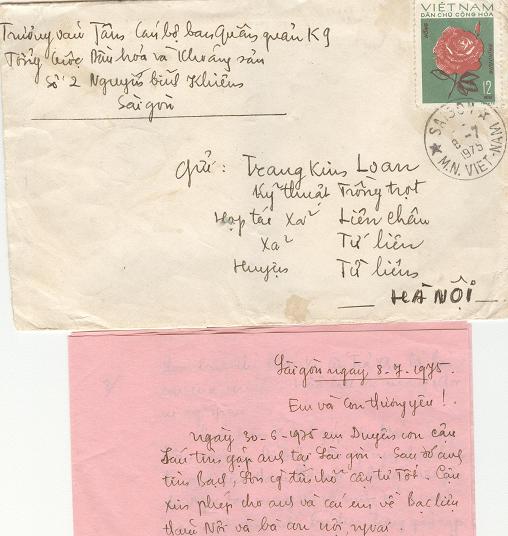 Trương văn Tâm Cán bộ ban Quân quản K9
Tổng cục Dầu hóa và Khoáng sản
Số 2 Nguyễn bỉnh Khiêm
Sàigòn
VIỆT NAM
DÂN CHỦ CỘNG HÒA
12
SAIGON
8-7
1975
M.N. VIET-NAM
Gửi: Trang Kim Loan
Kỹ thuật Trồng trọt
Hợp tác Xã Liên châu
Xã Tứ liên
Huyện Từ liêm
HÀ NỘI
Sàigòn ngày 8.7.1975.
Em và Con thương yêu!
Ngày 30-6-1975 em Duyên con cậu
Sáu tìm gặp anh tại Sàigòn. Sau đó anh
tìm Bạch, Sơn cậu Tư Tốt. Cậu
xin phép cho anh và các em về Bạc liêu
thăm Nội và bà con nội, ngoại.